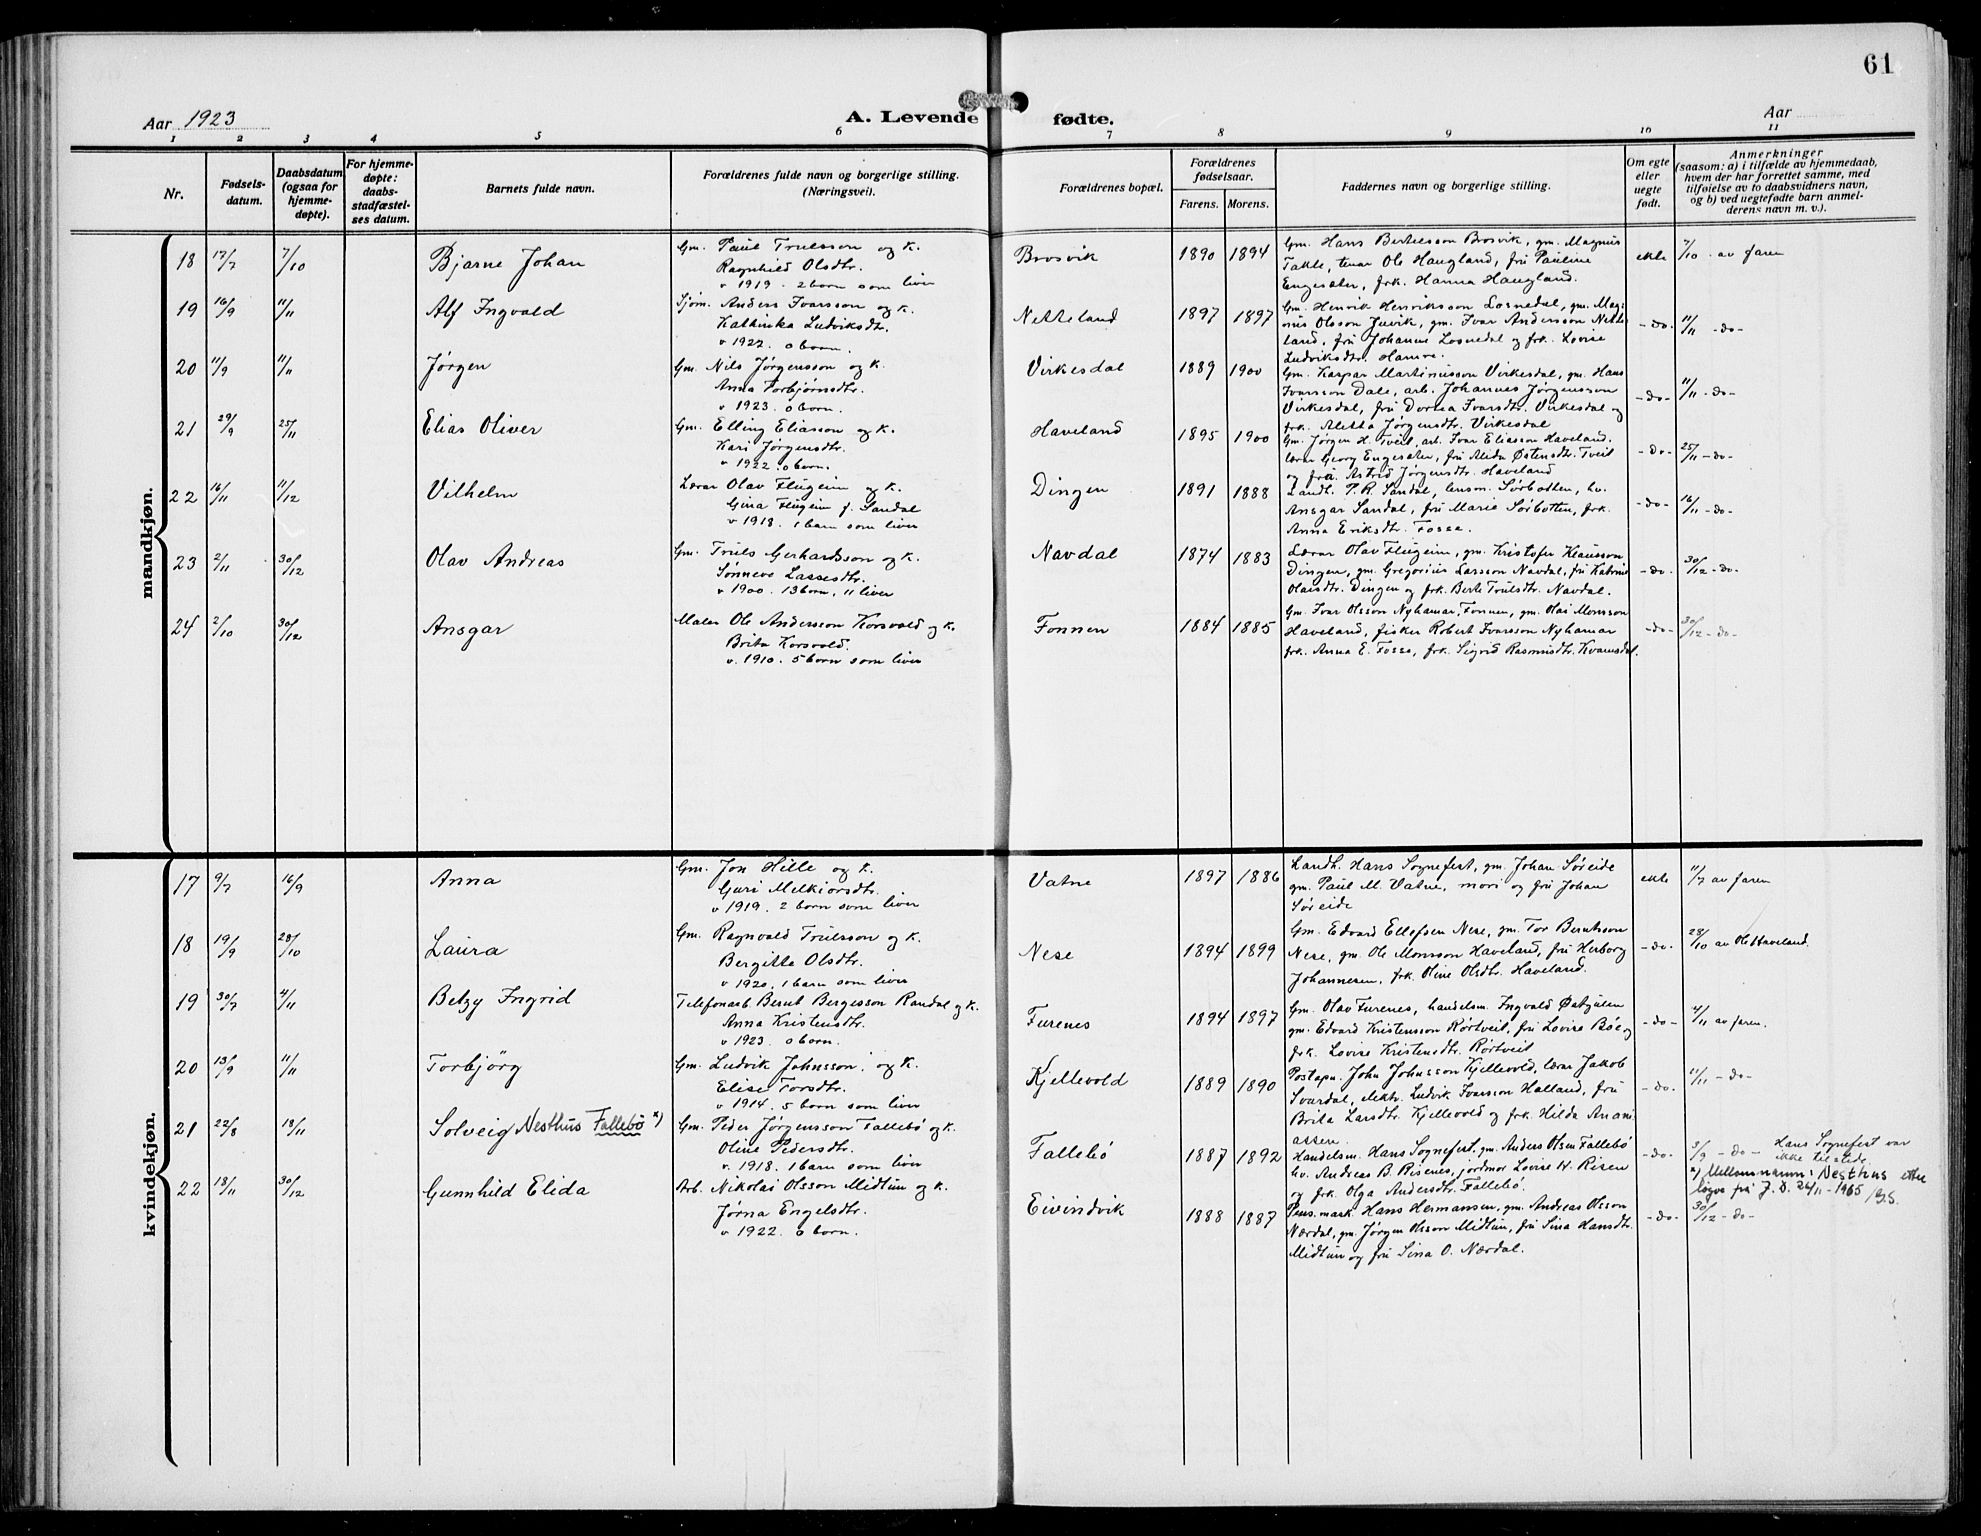 61
Aar 1923
A. Levende fødte.
Aar
1 2 3 4 5 6 7 8 9 10 11
Nr.
Fødselsdatum.
Daabsdatum (ogsaa for hjemmedøpte).
For hjemmedøpte: daabsstadfæstelses datum.
Barnets fulde navn.
Forældrenes fulde navn og borgerlige stilling. (Næringsvei).
Forældrenes bopæl.
Forældrenes fødselsaar.
Farens. Morens.
Faddernes navn og borgerlige stilling.
Om egte eller uegte født.
Anmerkninger
(saasom: a) i tilfælde av hjemmedaab, hvem der har forrettet samme, med tilføielse av to daabsvidners navn, og b) ved uegtefødte barn anmelderens navn m. v.).
mandkjøn.
18 17/7 7/10 Bjarne Johan
Gm. Paul Trulsson og k.
Ragnhild Olsdtr.
v 1919 - 2 born som liver
Brosvik 1890 1894
Gm. Hans Bertelsson Brosvik, gm. Magnus
Takle, tenar Ole Haugland, fru Pauline
Engesæter, frk. Hanna Haugland.
ekte 7/10 - av faren
19 16/9 11/11 Alf Ingvald
Sjøm. Anders Ivarsson og k.
Kathinka Ludviksdtr.
v 1922. 0 born.
Netteland 1897 1897
Gm. Henrik Henriksson Losnedal, gm. Mag-
nus Olsson Juvik, gm. Ivar Andersson Nette-
land, fru Johanne Losnedal og frk. Lovise
Ludviksdtr. Hamre.
-do- 11/11 -do-
20 11/9 11/11 Jørgen
Gm. Nils Jørgensson og k.
Anna Torbjørnsdtr.
v 1923. 0 born.
Virkesdal 1889 1900
Gm. Kaspar Martinusson Virkesdal, gm. Hans
Ivarsson Dale, arb. Johannes Jørgensson
Virkesdal, fru Dortea Ivarsdtr. Virkesdal og
frk. Aletta Jørgensdtr. Virkesdal
-do- 11/11 -do-
21 29/9 25/11 Elias Oliver
Gm. Elling Eliasson og k.
Kari Jørgensdtr.
v 1922. 0 born.
Haveland 1895 1900
Gm. Jørgen H. Tveit, arb. Ivar Eliasson Haveland.
lærar Georg Engesæter, fru Alida Østensdtr. Tveit
og frk. Astrid Jørgensdtr. Haveland
-do- 25/11 -do-
22 16/11 11/12 Vilhelm
Lærar Olav Flugeim og k.
Gina Flugeim f. Sandal
v 1918. 1 barn som liver
Dingen 1891 1888
Landh. P. R. Sandal, lensm. Sørbotten, hv.
Ansgar Sandal, fru Marie Sørbotten, frk.
Anna Eriksdtr. Fosse.
-do- 16/11 -do-
23 2/11 30/12 Olav Andreas
Gm. Truls Gerhardsson og k.
Sønneve Lassesdtr.
v 1900. 13 born, 11 liver
Navdal 1874 1883
Lærar Olav Flugeim, gm. Kristofer Klausson
Dingen, gm. Gregorius Larsson Navdal, fru Katrine
Olaisdtr. Dingen og frk. Berte Trulsdtr. Navdal.
-do- 30/12 -do-
24 2/10 30/12 Ansgar
Malar Ole Andersson Korsvold og k.
Brita Korsvold.
v. 1910. 5 born som liver
Fonnen 1884 1885
Gm. Ivar Olsson Nyhamar, Fonnen, gm. Olai Monsson
Haveland, fisker Robert Ivarsson Nyhamar
frk. Anna E. Fosse, frk. Sigrid Rasmusdtr. Kvamsdal.
-do- 30/12 -do-
kvindekjøn.
17 9/7 16/9 Anna
Gm. Jon Hille og k.
Guri Melkiorsdtr.
v 1919. 2 born som liver
Vatne 1897 1886
Landh. Hans Sognefest, gm. Johan Søreide
gm. Paul M. Vatne, mori og fru Johan
Søreide
ekte 11/7 av faren
18 19/9 28/10 Laura
Gm. Ragnvald Trulsson og k.
Bergitte Olsdtr.
v 1920. 1 barn som liver
Nese 1894 1899
Gm. Edvard Ellefsen Nese, gm. Tor Berntsson
Nese, gm. Ole Monsson Haveland, fru Herborg
Johannesen, frk. Oline Olsdtr. Haveland.
-do- 28/10 av Ole Haveland.
19 30/7 4/11 Betzy Ingrid
Telefonarb. Bernt Bergesson Randal og k.
Anna Kristensdtr.
v 1923 0 born.
Furenes 1894 1897
Gm. Olav Furenes, handelsm. Ingvald Østgulen
gm. Edvard Kristensson Rørtveit, fru Lovise Böe og
frk. Lovise Kristensdtr. Rørtveit
-do- 4/11 av faren.
20 13/9 11/11 Torbjörg
Gm. Ludvik Johnsson og k.
Elise Torsdtr.
v 1914. 5 born som liver
Kjellevold 1889 1890
Postopn. John Johnsson Kjellevold, lærar Jakob
Svardal, elektr. Ludvik Ivarsson Halland, fru
Brita Larsdtr. Kjellevold og frk. Hilda Anani-
assen.
-do- 11/11 -do-
21 22/8 18/11 Solveig Nesthus Fallebö x)
Gm. Peder Jørgensson Fallebö og k.
Oline Pedersdtr.
v. 1918. 1 barn som liver
Fallebö 1887 1892
Handelsm. Hans Sognefest, gm. Anders Olsen Fallebö
hv. Andreas B. Risenes, jordmor Lovise H. Risen
og frk. Olga Andersdtr. Fallebö.
-do- 3/9 -do- Hans Sognefest var
ikke tilstede
x) Mellomnamn: Nesthus etter
løyve frå J.D. 24/11-1965 /B.S.
22 18/11 30/12 Gunnhild Elida
Arb. Nikolai Olsson Midtun og k.
Jørna Engelsdtr.
v 1922. 0 born.
Eivindvik 1888 1887
Pens. mask. Hans Hermansen, gm. Andreas Olsson
Nærdal, gm. Jørgen Olsson Midtun, fru Sina Hansdtr.
Midtun og fru Sina O. Nærdal.
-do- 30/12 -do-